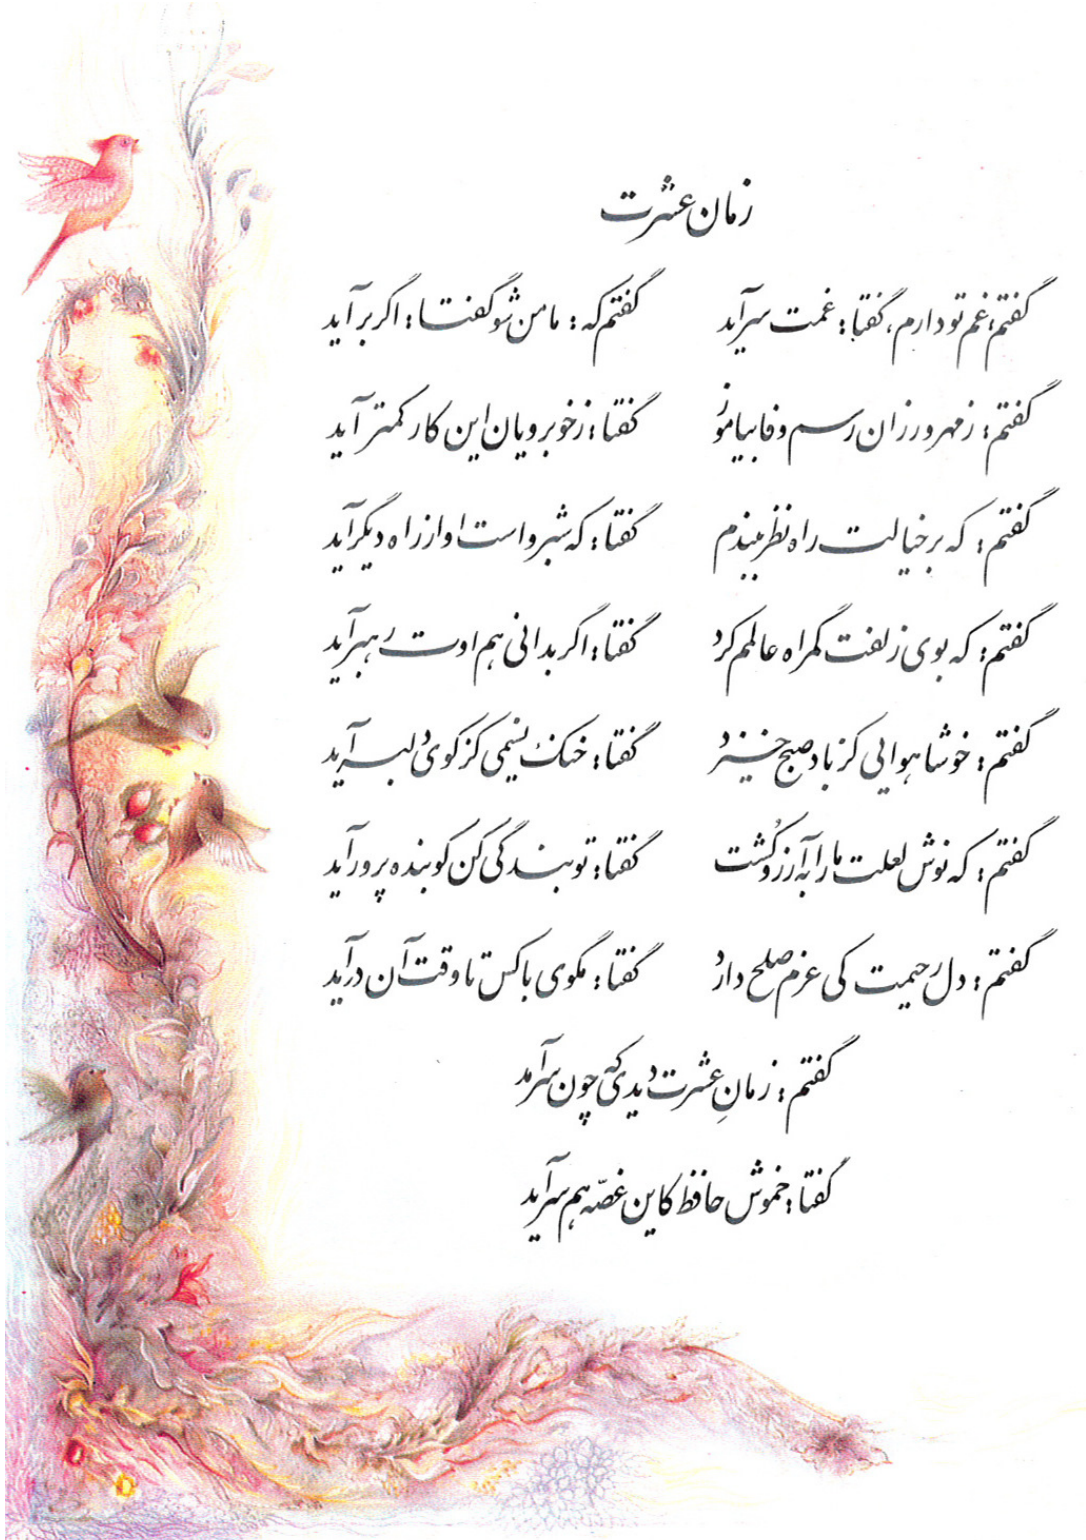 زمان عشرت
گفتم: غم تو دارم، گفتا: غمت سرآید گفتم که: ما من شو گفتا: اگر برآید
گفتم: ز مهرورزان رسم وفا بیاموز گفتا: ز خوبرویان این کار کمتر آید
گفتم: که بر خیالت راه نظر ببندم گفتا: که شبرو است او از راه دیگر آید
گفتم: که بوی زلفت گمراه عالمم کرد گفتا: اگر بدانی هم اوت رهبر آید
گفتم: خوشا هوایی کز باد صبح خیزد گفتا: خنک نسیمی کز کوی دلبر آید
گفتم: که نوش لعلت ما را به آرزو کُشت گفتا: تو بندگی کن کو بنده پرور آید
گفتم: دل رحیمت کی عزم صلح دارد گفتا: مگوی با کس تا وقت آن درآید
گفتم: زمانِ عشرت دیدی که چون سرآمد
گفتا: خموش حافظ کاین غصّه هم سرآید